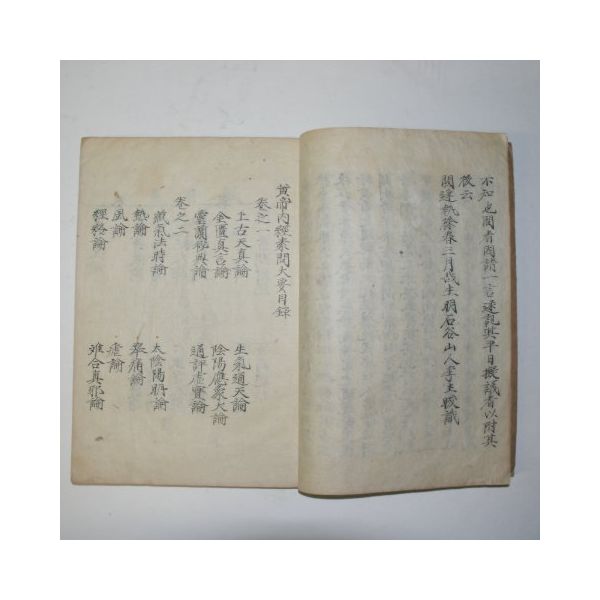 不知也間者因請一言遂敍其平日擬議者以附其
後云
閼逢執徐春三月哉生明石谷山人李圭晙識
黃帝內經素問大要目錄
卷之一
上古天真論
生氣通天論
金匱真言論
陰陽應象大論
靈蘭秘典論
通評虛實論
卷之二
藏氣法時論
太陰陽明論
熱論
擧痛論
風論
瘧論
經絡論
離合真邪論